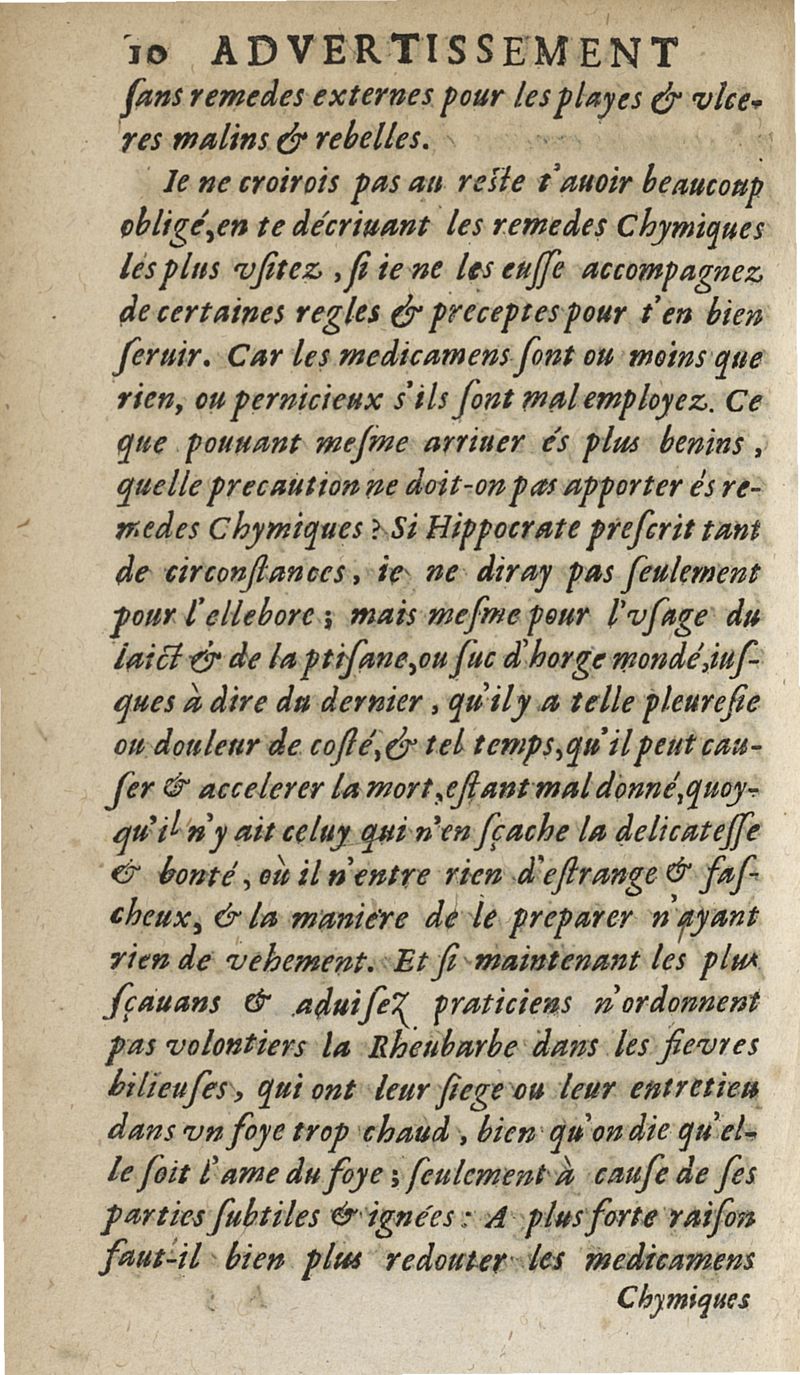 10 ADVERTISSEMENT
ſans remedes externes pour les playes & vlce-
res malins & rebelles.
Ie ne croirois pas au reſte t'auoir beaucoup
obligé, en te décriuant les remedes Chymiques
les plus vſitez, ſi ie ne les euſſe accompagnez
de certaines regles & preceptes pour t'en bien
ſeruir. Car les medicamens ſont ou moins que
rien, ou pernicieux s'ils ſont mal employez. Ce
que pouuant meſme arriuer és plus benins,
quelle precaution ne doit-on pas apporter és re-
medes Chymiques? Si Hippocrate preſcrit tant
de circonſtances, ie ne diray pas ſeulement
pour l'ellebore; mais meſme pour l'vſage du
laict & de la ptiſane, ou ſuc d'horge mondé, iuſ-
ques à dire du dernier, qu'il y a telle pleureſie
ou douleur de coſté, & tel temps, qu'il peut cau-
ſer & accelerer la mort, eſtant mal donné, quoy-
qu'il n'y ait celuy qui n'en ſçache la delicateſſe
& bonté, où il n'entre rien d'eſtrange & faſ-
cheux, & la maniere de le preparer n'ayant
rien de vehement. Et ſi maintenant les plus
ſçauans & aduiſez praticiens n'ordonnent
pas volontiers la Rheubarbe dans les fievres
bilieuſes, qui ont leur ſiege ou leur entretien
dans vn foye trop chaud, bien qu'on die qu'el-
le ſoit l'ame du foye; ſeulement à cauſe de ſes
parties ſubtiles & ignées: A plus forte raiſon
faut-il bien plus redouter les medicamens
Chymiques